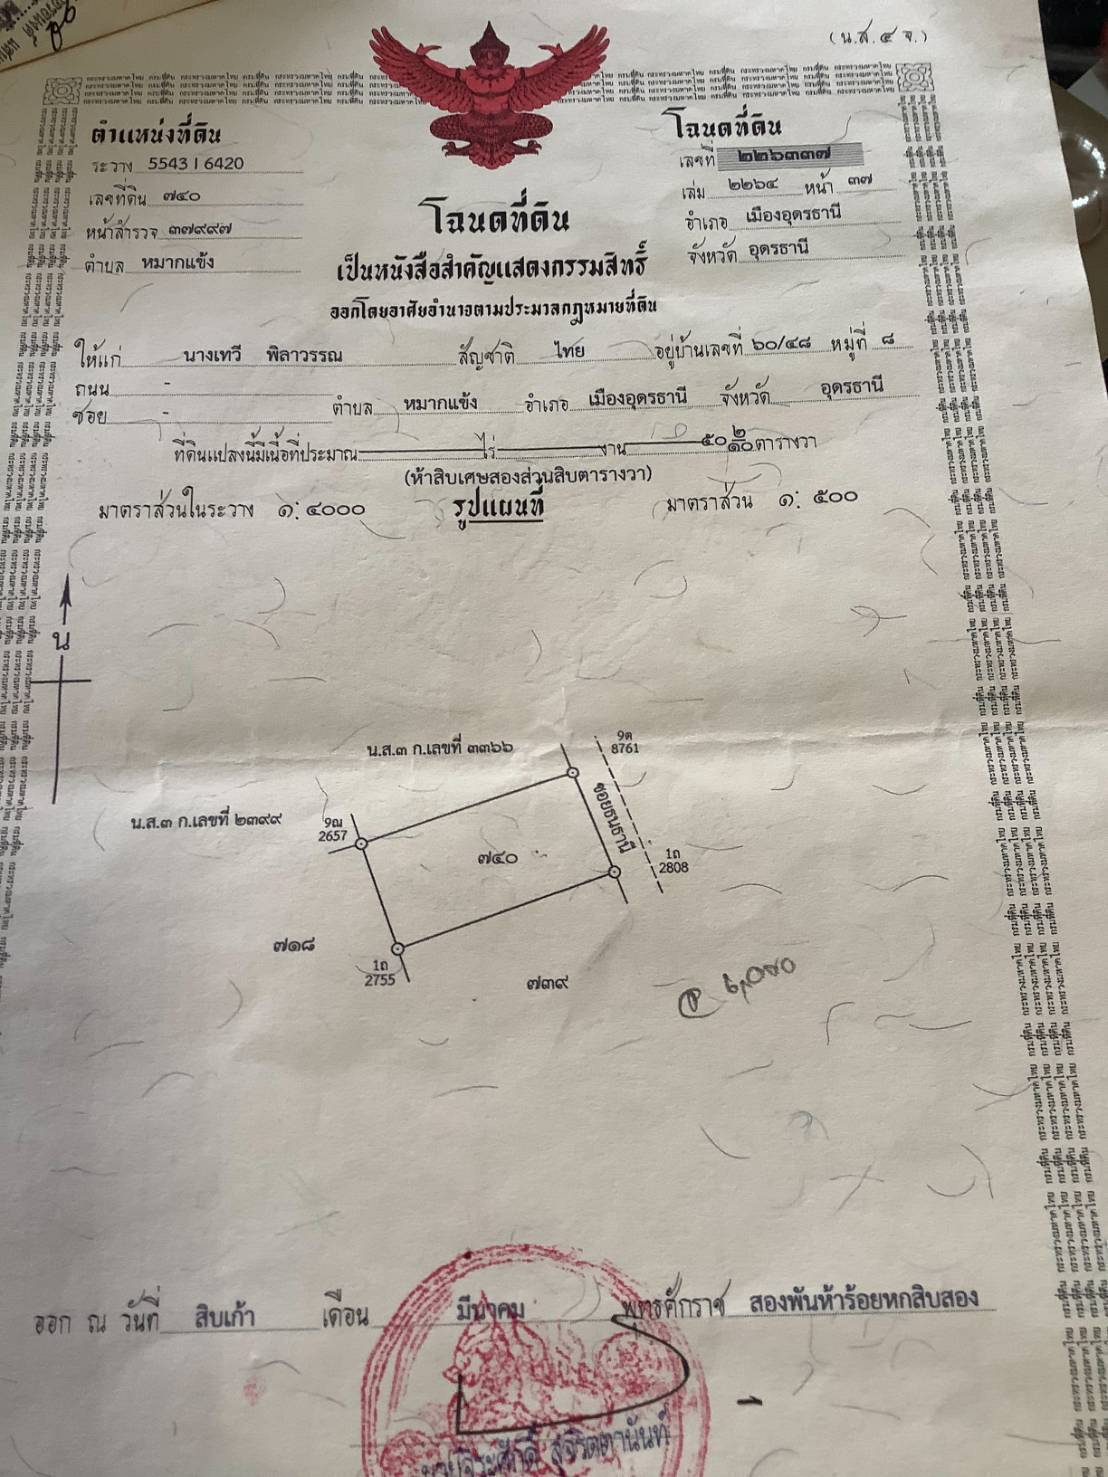 (น.ส.๔ จ.)
ตำแหน่งที่ดิน
ระวาง 5543 I 6420
เลขที่ดิน ๗๔๐
หน้าสำรวจ ๓๗๙๙๗
ตำบล หมากแข้ง
โฉนดที่ดิน
เลขที่ ๒๒๖๓๓๗
เล่ม ๒๒๖๔ หน้า ๓๗
อำเภอ เมืองอุดรธานี
จังหวัด อุดรธานี
โฉนดที่ดิน
เป็นหนังสือสำคัญแสดงกรรมสิทธิ์
ออกโดยอาศัยอำนาจตามประมวลกฎหมายที่ดิน
ให้แก่ นางเทวี พิลาวรรณ สัญชาติ ไทย อยู่บ้านเลขที่ ๖๐/๔๘ หมู่ที่ ๘
ถนน -
ซอย - ตำบล หมากแข้ง อำเภอ เมืองอุดรธานี จังหวัด อุดรธานี
ที่ดินแปลงนี้มีเนื้อที่ประมาณ ไร่ งาน ๕๐ ๒/๑๐ ตารางวา
(ห้าสิบเศษสองส่วนสิบตารางวา)
มาตราส่วนในระวาง ๑: ๔๐๐๐ รูปแผนที่ มาตราส่วน ๑: ๕๐๐
น
น.ส.๓ ก.เลขที่ ๓๓๖๖
9ต
8761
น.ส.๓ ก.เลขที่ ๒๓๙๙
9ฌ
2657
ซอยธนธานี
๗๔๐
1ถ
2808
๗๑๘
1ถ
2755
๗๓๙
ออก ณ วันที่ สิบเก้า เดือน มีนาคม พุทธศักราช สองพันห้าร้อยหกสิบสอง